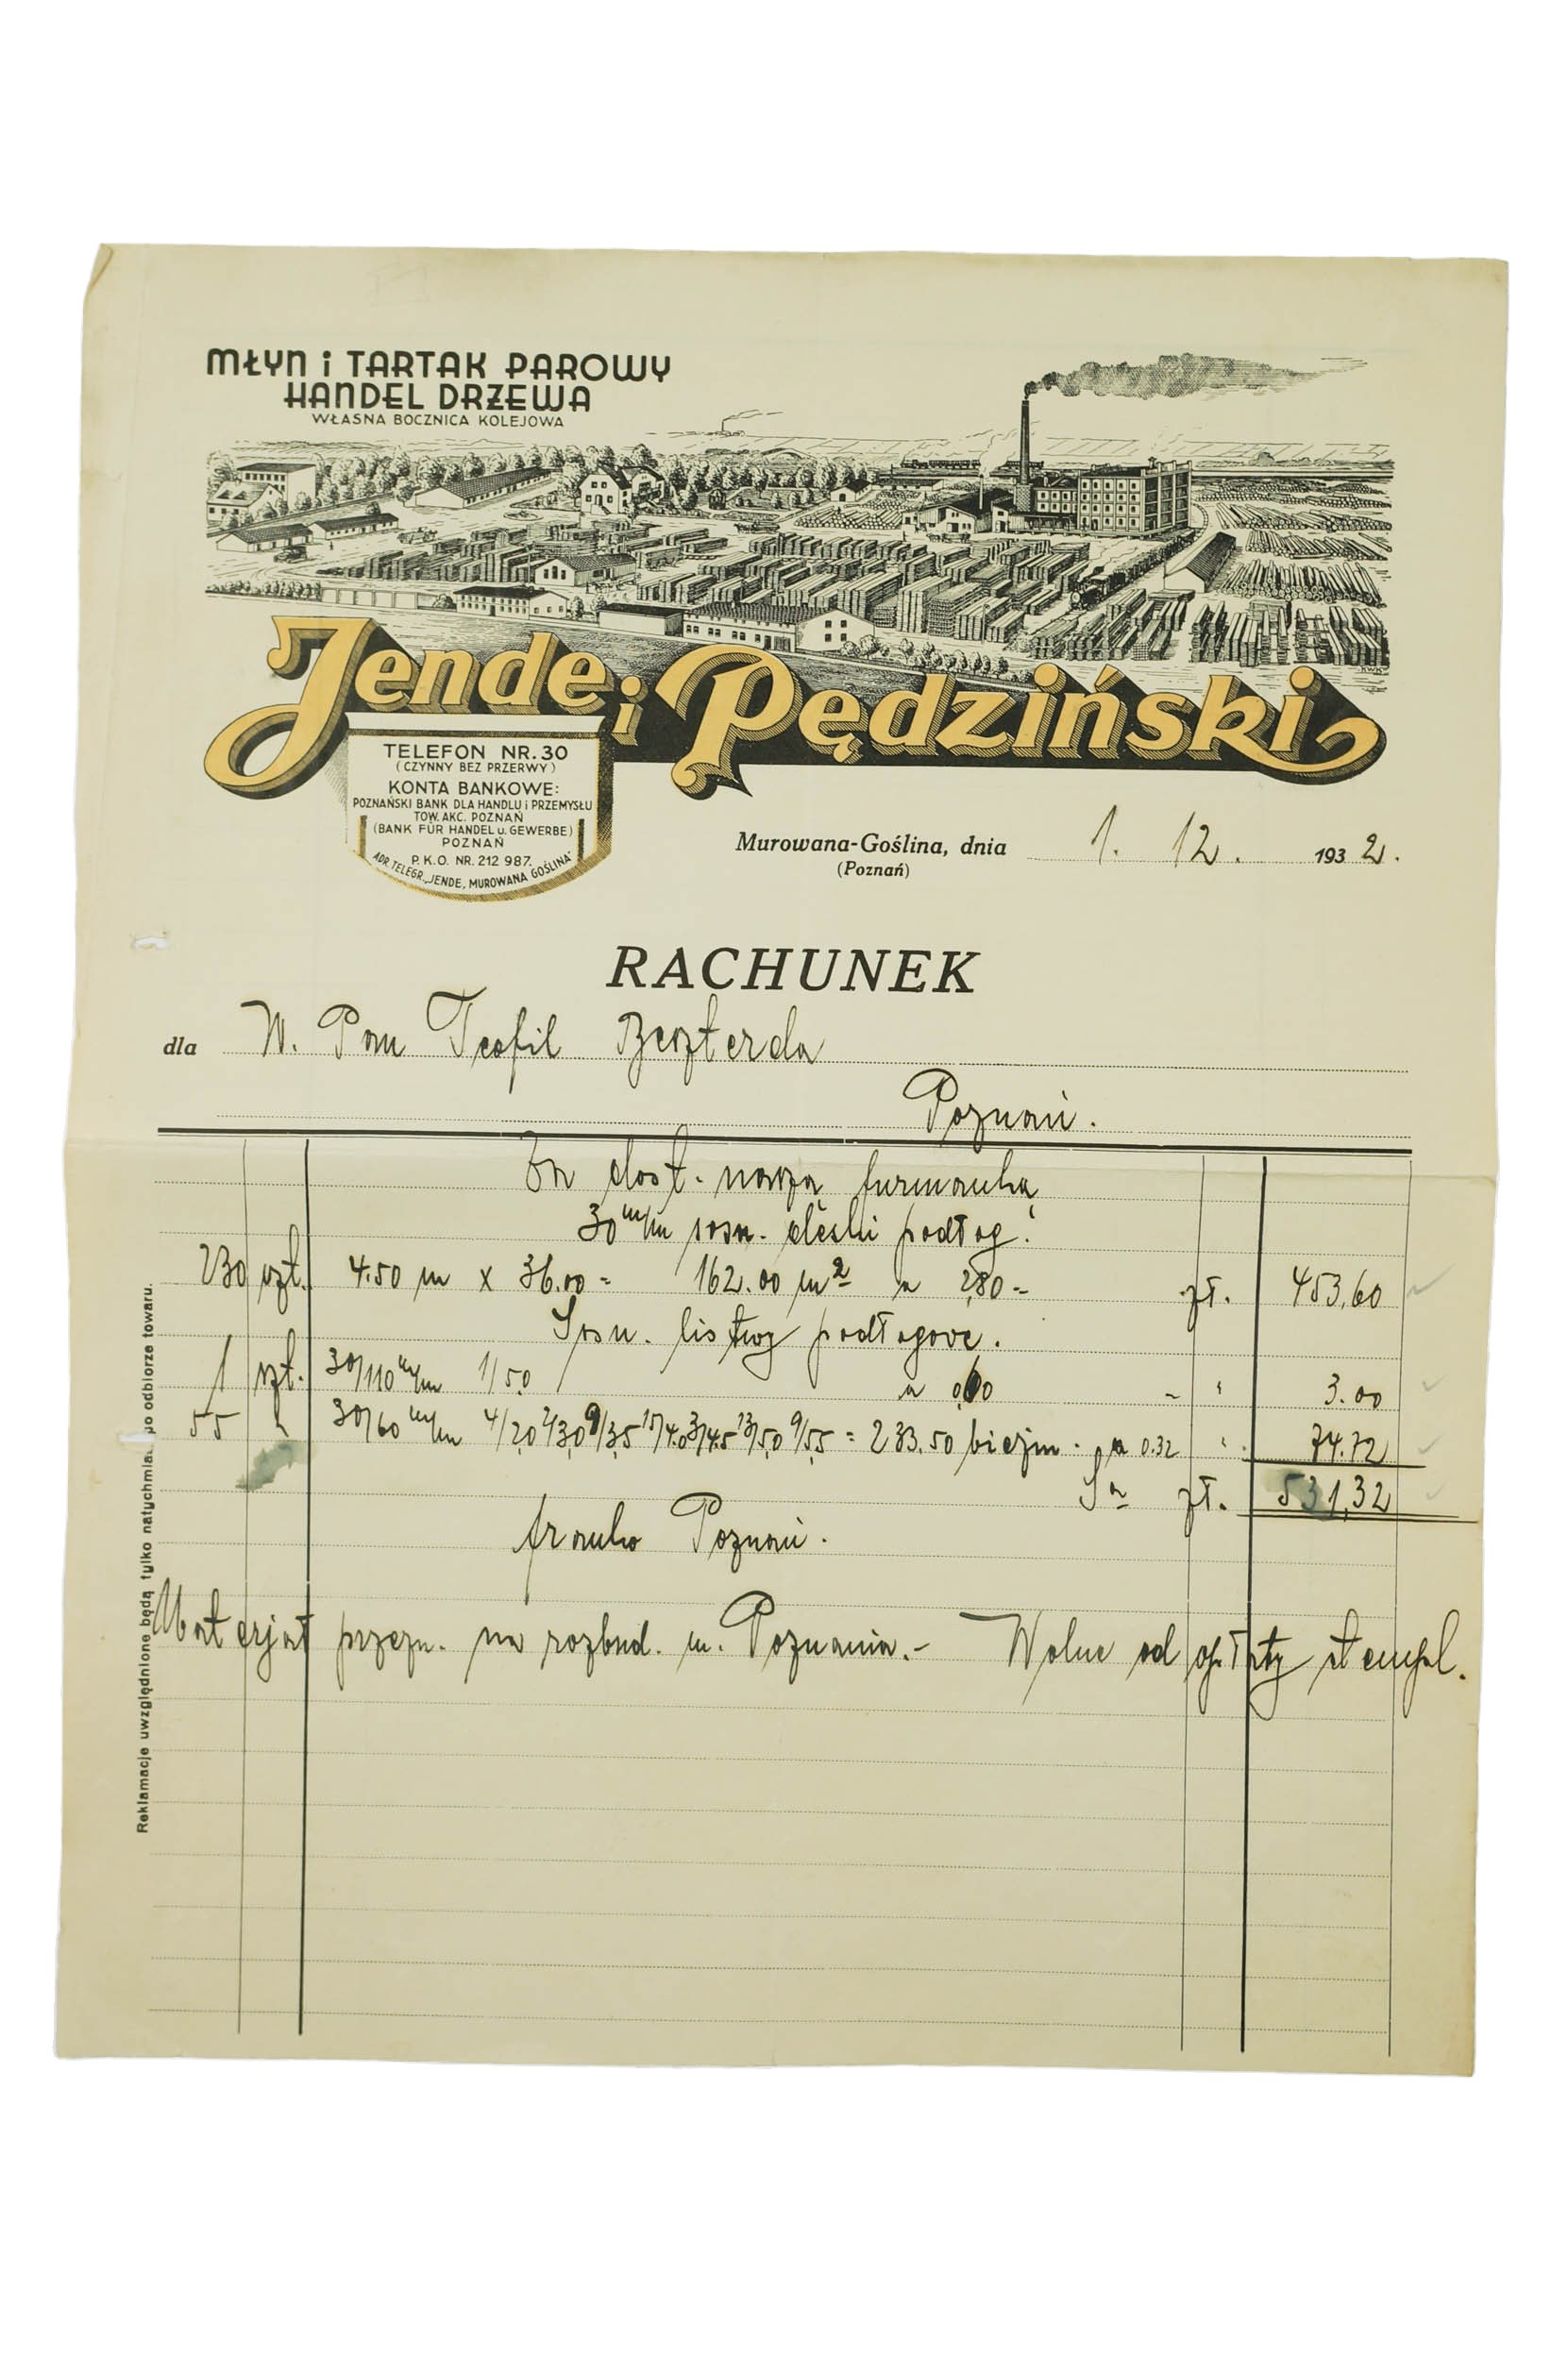 MŁYN i TARTAK PAROWY
HANDEL DRZEWA
WŁASNA BOCZNICA KOLEJOWA
Jende i Pędziński
TELEFON NR. 30
(CZYNNY BEZ PRZERWY)
KONTA BANKOWE:
POZNAŃSKI BANK DLA HANDLU i PRZEMYSŁU
TOW. AKC. POZNAŃ
(BANK FÜR HANDEL u. GEWERBE)
POZNAŃ
P. K. O. NR. 212 987.
ADR. TELEGR. „JENDE, MUROWANA GOŚLINA"
Murowana-Goślina, dnia 1. 12. 1932.
(Poznań)
RACHUNEK
dla W. Pan Teofil Beszterda
Poznań.
Za dost. naszą furmanką
30 m/m sosn. deski podłog:
230 szt. 4.50 m x 36.00 = 162.00 m² a 2,80 = zł. 453,60
Sosn. listwy podłogowe.
1 szt. 30/110 m/m 1/5,0 a 0,60 - " 3.00
55 " 30/60 m/m 4/2,0 2/3,0 9/3,5 15/4.0 3/4.5 13/5,0 9/5,5 = 233.50 bieżm. a 0.32 " 74.72
Sa zł. 531,32
franko Poznań.
Materjał przezn. na rozbud. m. Poznania.- Wolne od opłaty stempl.
Reklamacje uwzględnione będą tylko natychmiast po odbiorze towaru.